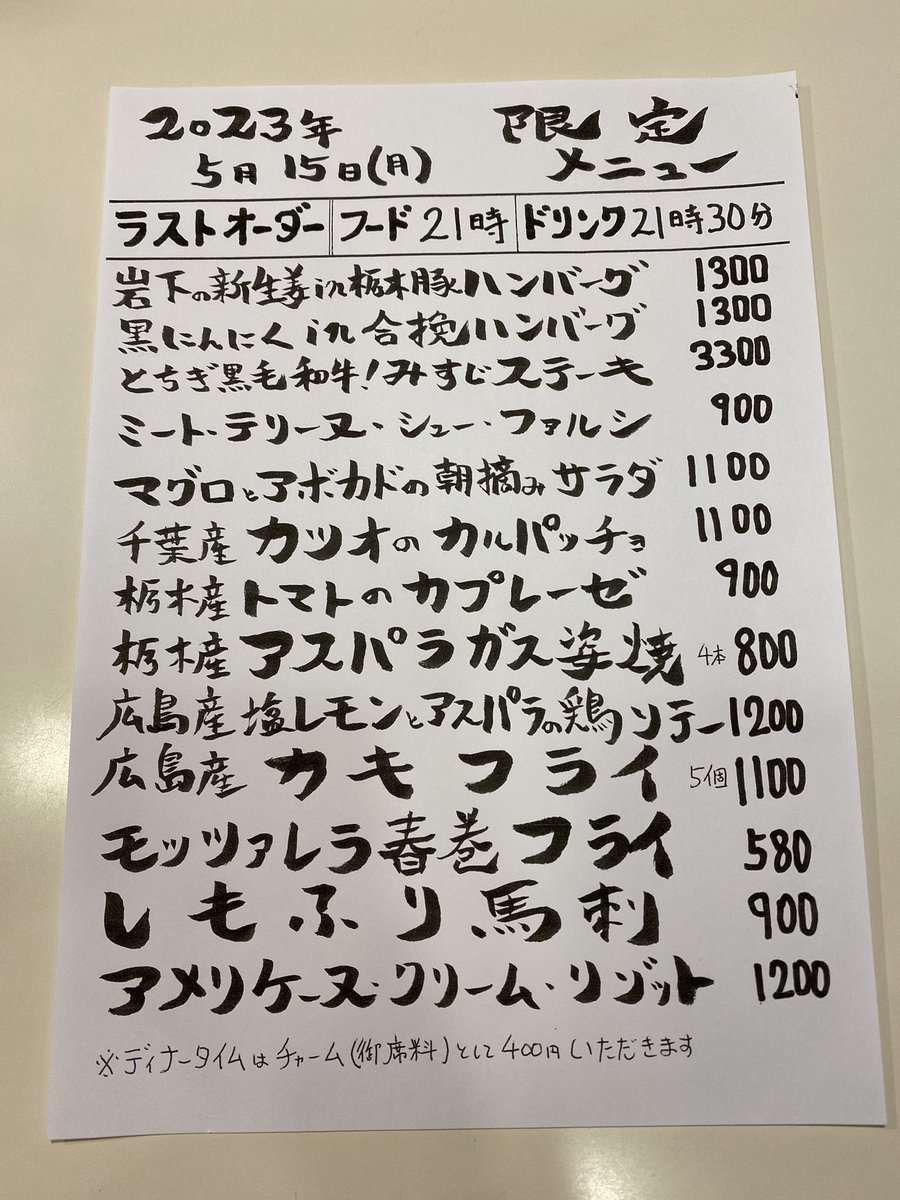 2023年 限定
5月15日(月) メニュー
ラストオーダー フード21時 ドリンク21時30分
岩下の新生姜in栃木豚ハンバーグ 1300
黒にんにくin合挽ハンバーグ 1300
とちぎ黒毛和牛!みすじステーキ 3300
ミート・テリーヌ・シュー・ファルシ 900
マグロとアボカドの朝摘みサラダ 1100
千葉産 カツオのカルパッチョ 1100
栃木産 トマトのカプレーゼ 900
栃木産 アスパラガス姿焼 4本 800
広島産 塩レモンとアスパラの鶏ソテー 1200
広島産 カキフライ 5個 1100
モッツァレラ春巻フライ 580
しもふり馬刺 900
アメリケーヌ・クリーム・リゾット 1200
※ディナータイムはチャーム(御席料)として400円いただきます